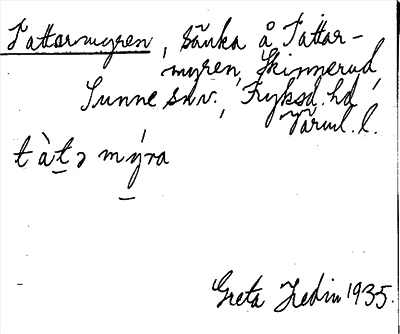 Tattarmyren, sänka å Tattar-
myren, Skinnerud,
Sunne snv., Fryksd. hd,
Värml. l.
tàtə mýra
Greta Hedin 1935.